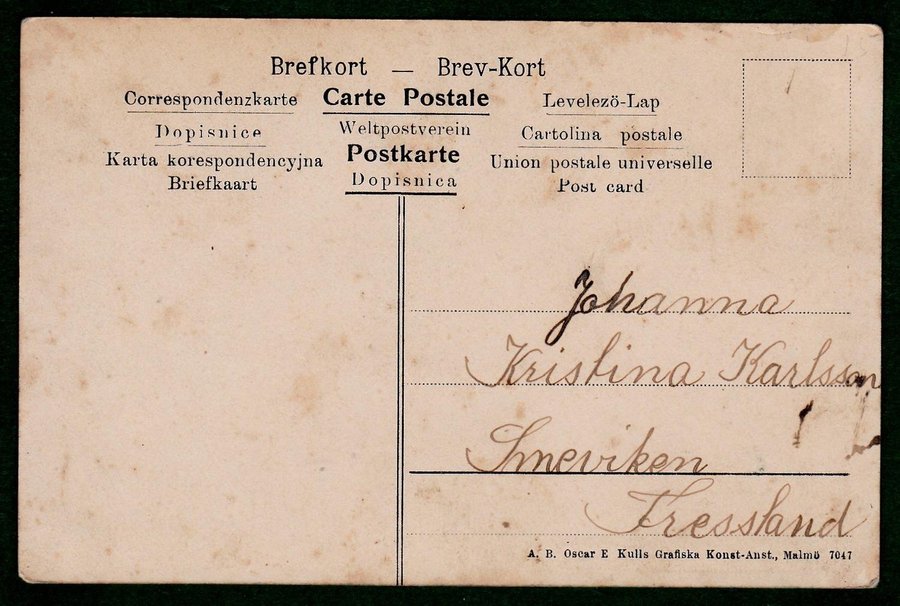 Brefkort — Brev-Kort
Correspondenzkarte Carte Postale Levelezö-Lap
Dopisnice Weltpostverein Cartolina postale
Karta korespondencyjna Postkarte Union postale universelle
Briefkaart Dopisnica Post card
Johanna
Kristina Karlsson
Smeviken
Fressland
A. B. Oscar E Kulls Grafiska Konst-Anst., Malmö 7047